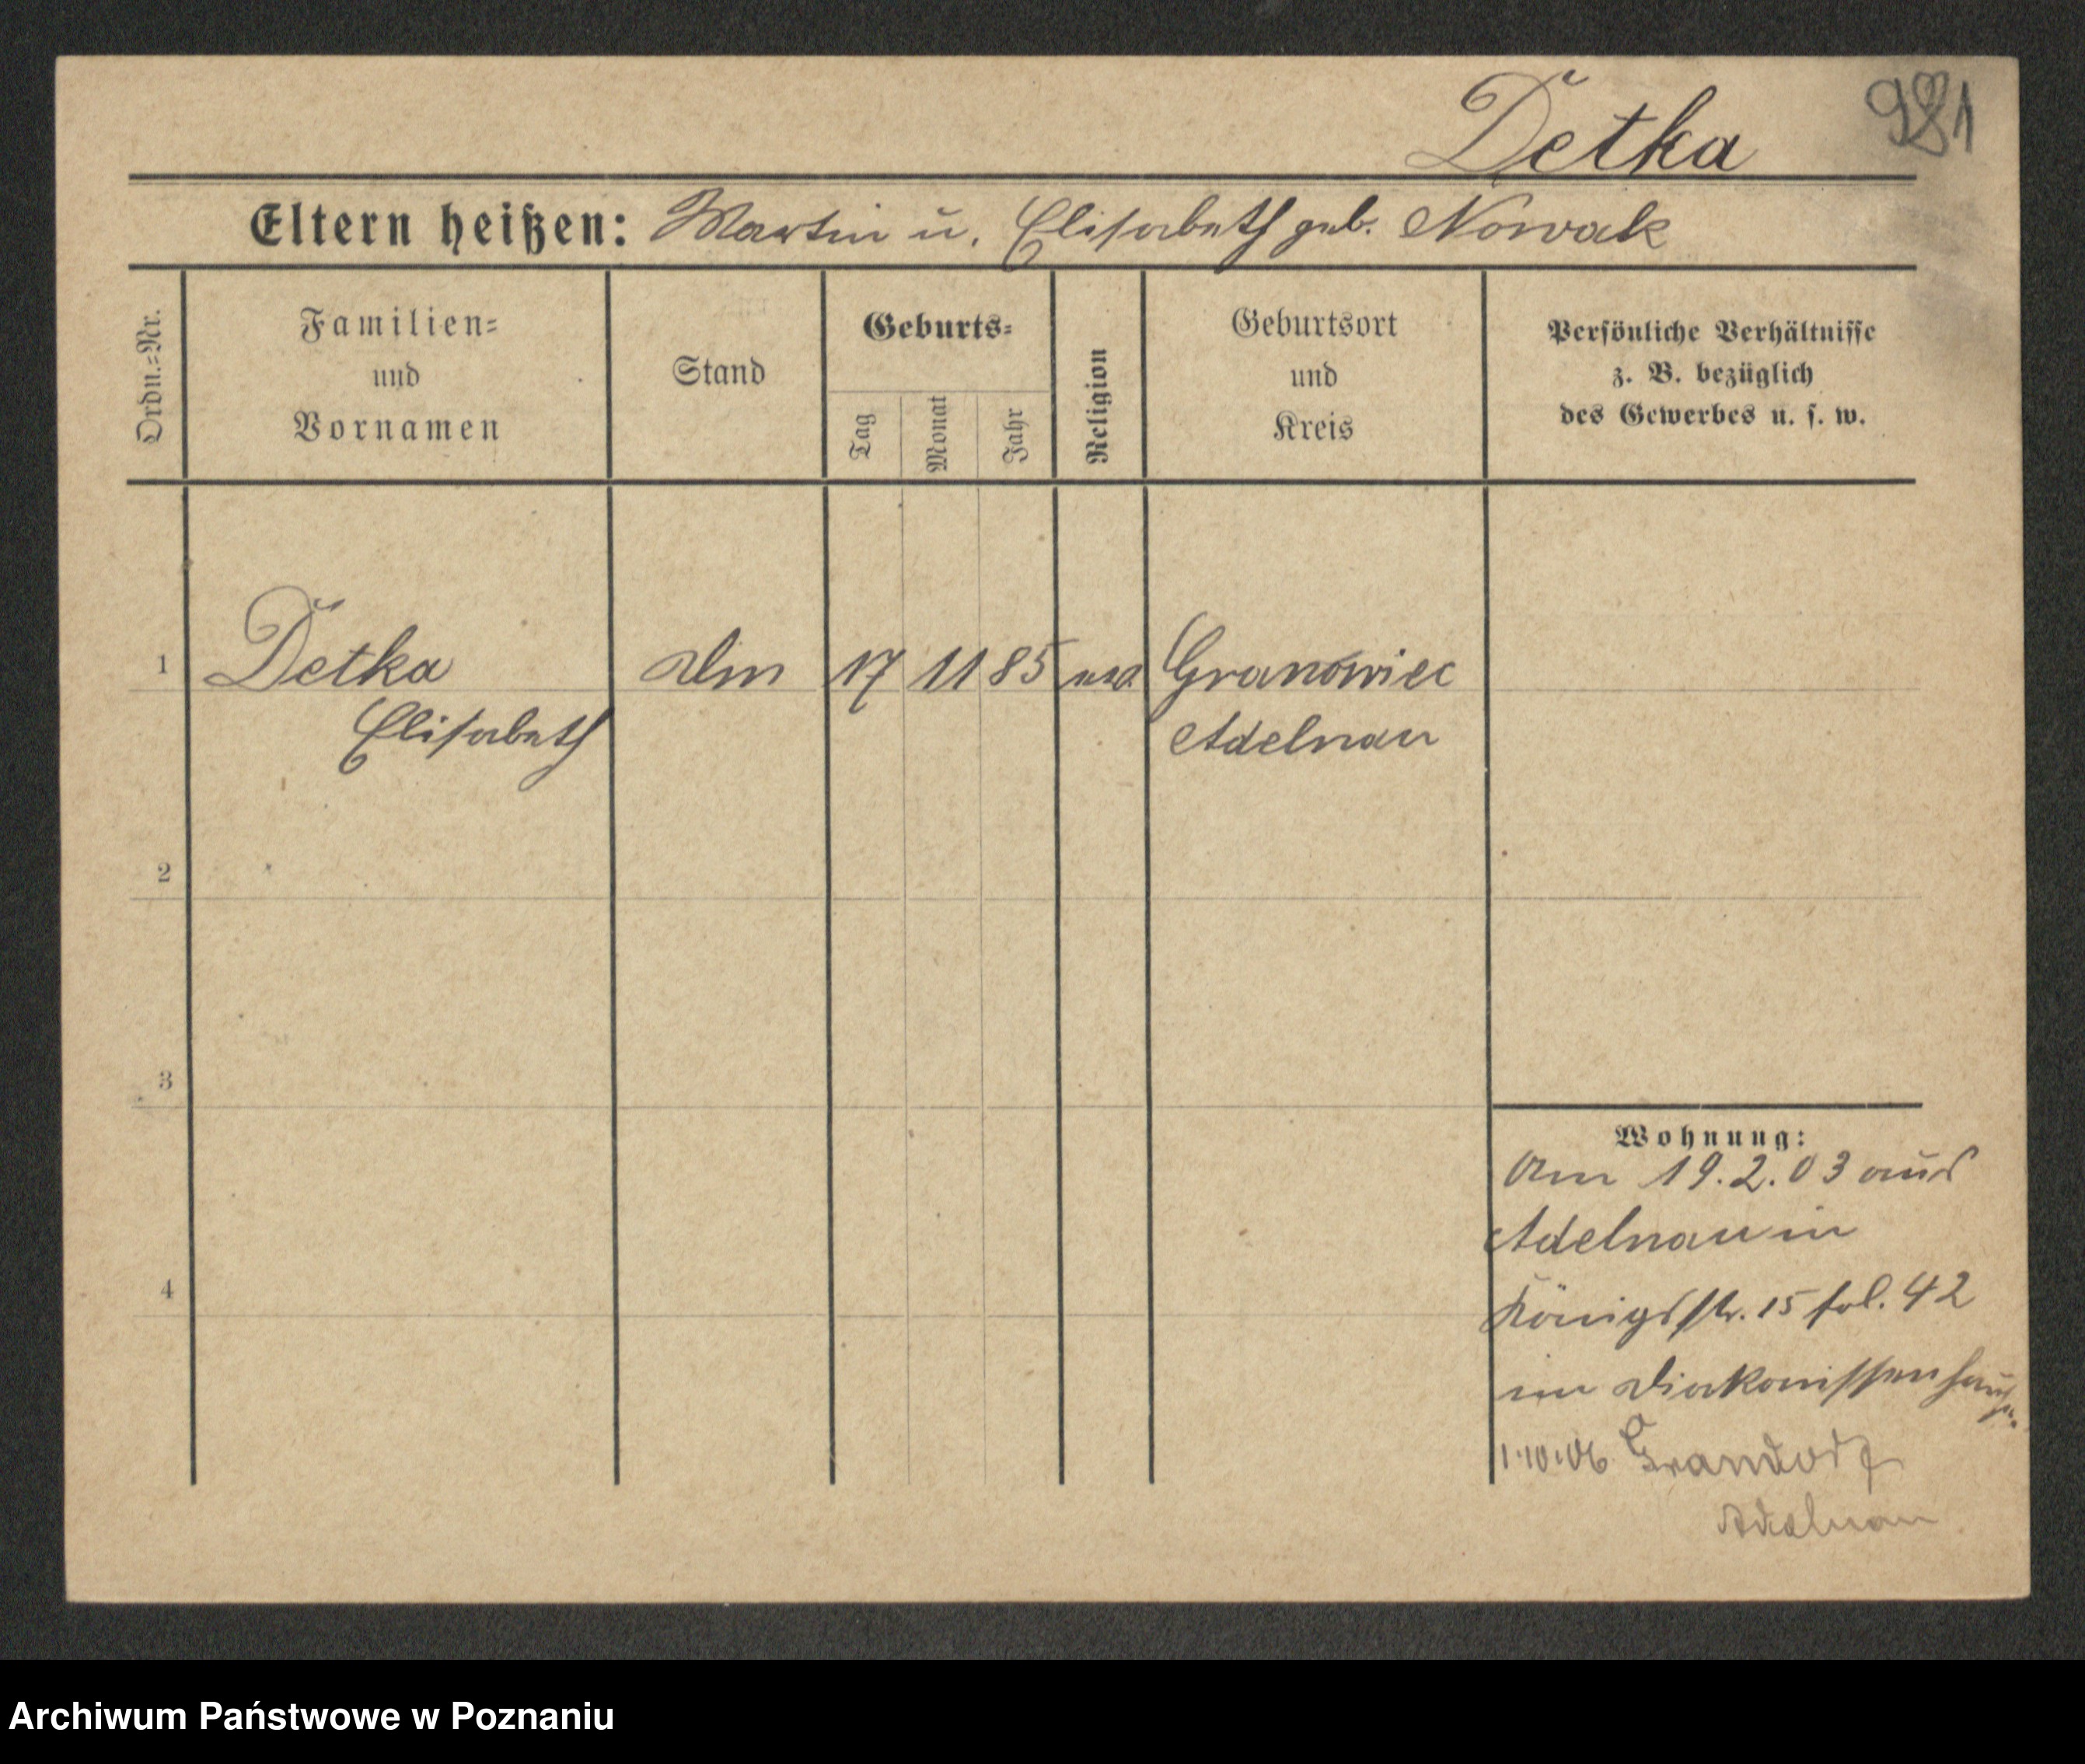 Detka
981
Eltern heißen: Martin u. Elisabeth geb. Nowak
Ordn.=Nr.
Familien=
und
Vornamen
Stand
Geburts=
Tag
Monat
Jahr
Religion
Geburtsort
und
Kreis
Persönliche Verhältnisse
z. B. bezüglich
des Gewerbes u. s. w.
1 Detka 17 11 85 Granowiec
Elisabeth Adelnau
2
3
4
Wohnung:
Am 19.2.03 aus
Adelnau in
Königsstr. 15 fol. 42
im Diakonissenhause.
1.10.06
Adelnau
Archiwum Państwowe w Poznaniu